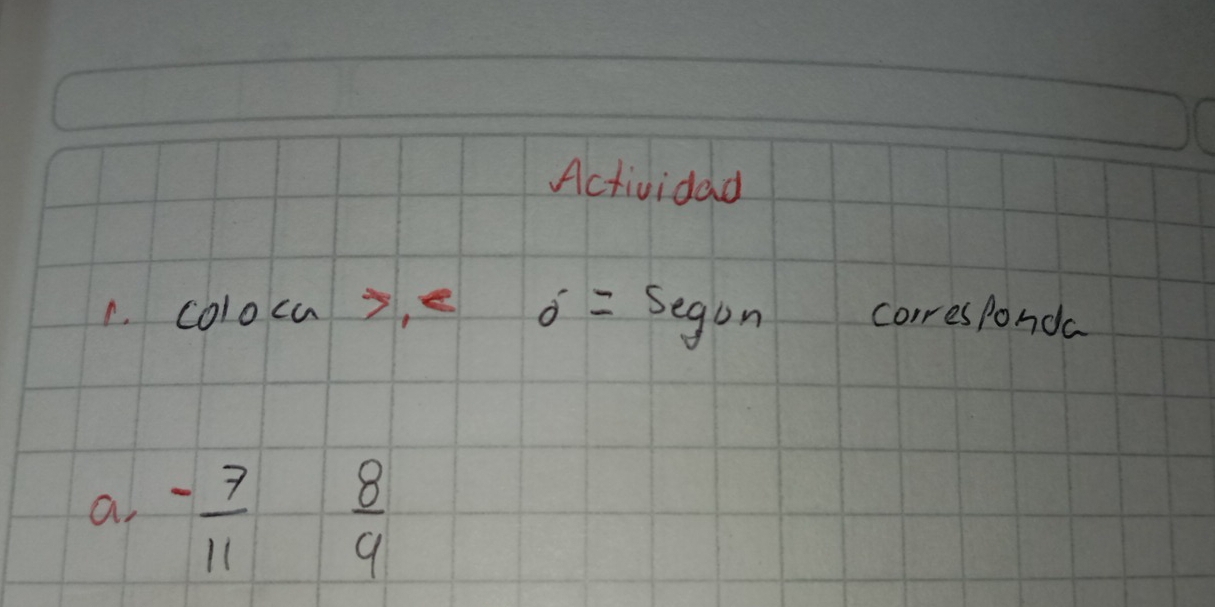 Actividad
1. coloca >, < ó = Segun corresponda
a. - 7/11 8/9